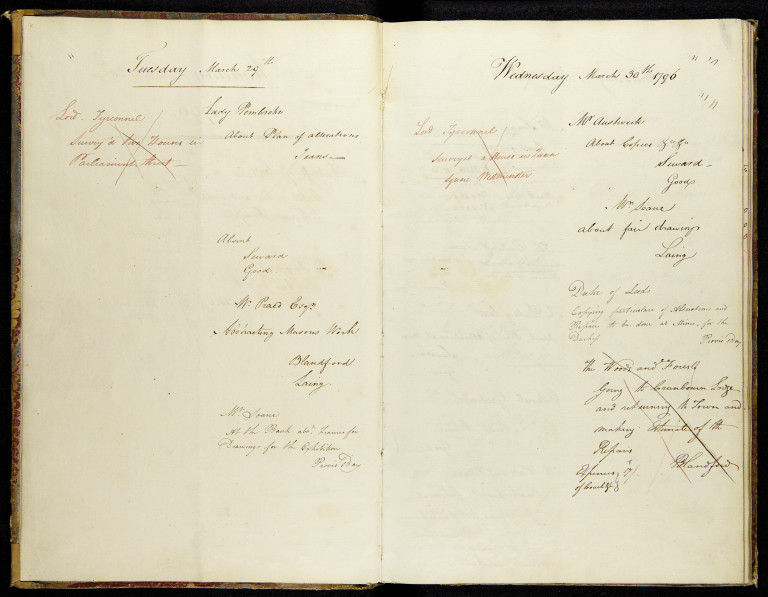 Tuesday March 29th
Lord Tyrconnel
Survey'g two Houses in
Parliament Street
Lady Pembroke
About Plan of alterations
Jeans
About
Seward
Good
Wm Praed Esqr
Abstracting Masons Work
Blandford
Laing
Mr Soane
At the Bank abt Frames for
Drawings for the Exhibition
Provis 1 Day
Wednesday March 30th 1796
Lord Tyrconnel
Surveying a House in
Square Westminster
Mr
About Copies &c &c
Seward
Good
Mr Soane
about fair drawings
Laing
Duke of Leeds
Copying particulars of Alterations and
Repairs to be done at Mims, for the
Duchess
Provis 1 Day
The Woods and Forests
Going to Cranbourn Lodge
and returning to Town and
making Estimate of the
Repairs
Expences
Blandford
of &c &c